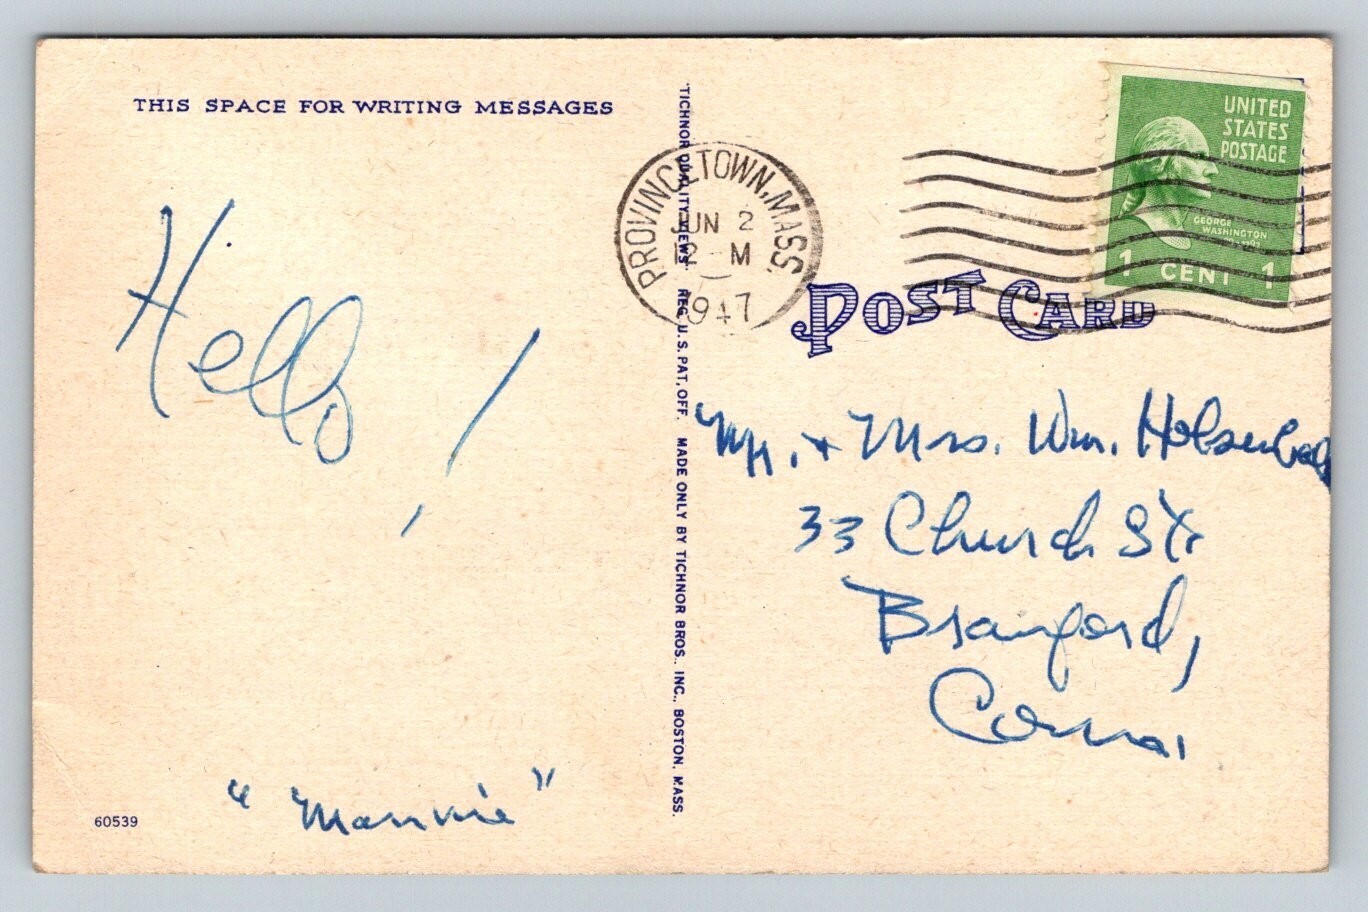 THIS SPACE FOR WRITING MESSAGES
Hello!
"Mannie"
60539
TICHNOR QUALITY VIEWS REG. U. S. PAT. OFF. MADE ONLY BY TICHNOR BROS., INC., BOSTON, MASS.
PROVINCETOWN, MASS.
JUN 2
12 M
1947
UNITED
STATES
POSTAGE
GEORGE
WASHINGTON
1 CENT 1
POST CARD
Mr. + Mrs. Wm.
33 Church Str
Branford,
Conn.